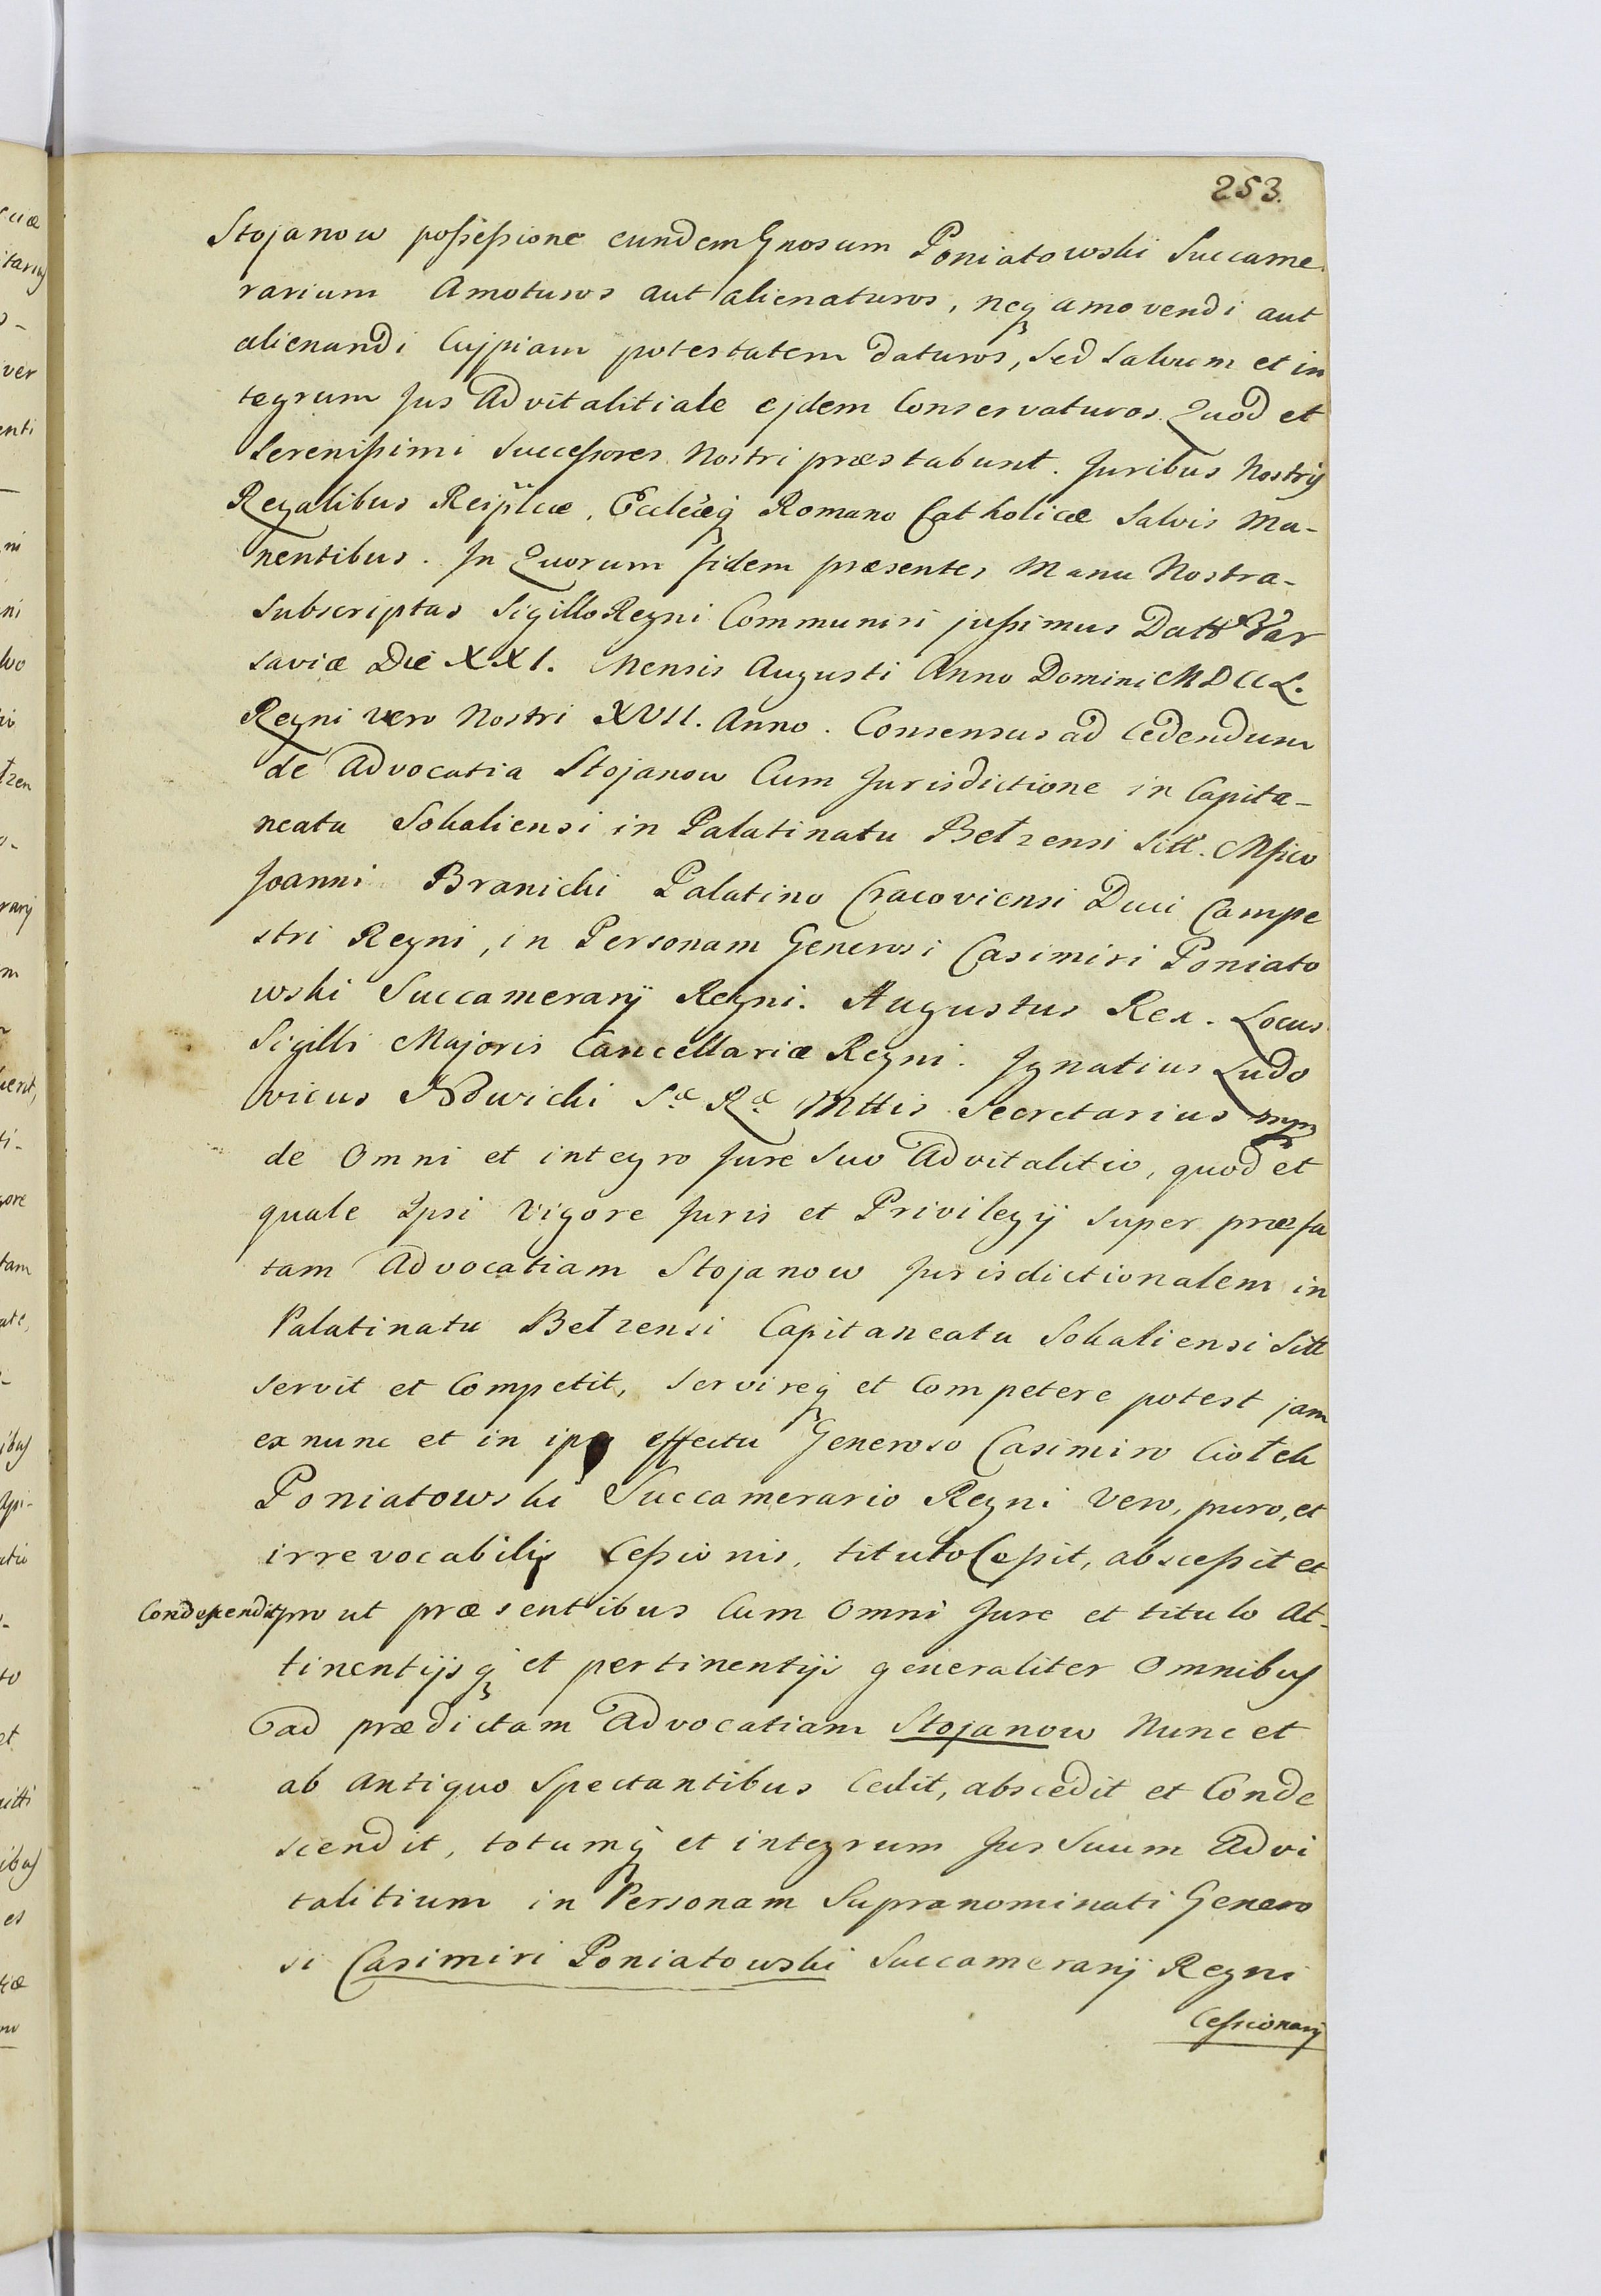 253.
Stojanow possessione eundem Gnosum Poniatowski Succame
rarium Amoturos aut alienaturos, neq amovendi aut
alienandi Cujpiam potestatem daturos, sed salvum et in
tegrum Jus Advitalitiale ejdem Conservaturos. Quod et
Serenissimi Successores Nostri præstabunt. Juribus Nostris
Regalibus Reiplcæ, Ecclæq Romano Catholicæ Salvis Ma-
nentibus. In Quorum fidem præsentes Manu Nostra-
Subscriptas Sigillo Regni Communiri jussimus Datt Var
saviæ Die XXI. Mensis Augusti Anno Domini MDCCL.
Regni vero Nostri XVII. Anno. Consensus ad Cedendum
de Advocatia Stojanow Cum Jurisdictione in Capita-
neatu Sokaliensi in Palatinatu Bełzensi Sitt. Mfico
Joanni Branicki Palatino Cracoviensi Duci Campe
stri Regni, in Personam Generosi Casimiri Poniato
wski Succamerarij Regni. Augustus Rex. Locus
Sigilli Majoris Cancellariæ Regni. Ignatius Ludo
vicus Nowicki Sæ Ræ Mttis Secretarius mp
de Omni et integro Jure Suo Advitalitio, quod et
quale Ipsi Vigore Juris et Privilegij super præfa
tam Advocatiam Stojanow Jurisdictionalem in
Palatinatu Bełzensi Capitaneatu Sokaliensi Sitt
servit et Competit, servireq et Competere potest jam
ex nunc et in ipo effectu Generoso Casimiro Ciołek
Poniatowski Succamerario Regni Vero, puro, et
irrevocabilis Cessionis, titulo Cessit, abscessit et
Condescendit pro ut præsentibus Cum Omni Jure et titulo At-
tinentijsq et pertinentijs generaliter Omnibus
ad prædictam Advocatiam Stojanow Nunc et
ab Antiquo Spectantibus Cedit, abscedit et Conde
scendit, totumq et integrum Jus Suum Advi
talitium in Personam Supranominati Genero
si Casimiri Poniatowski Succamerarij Regni
Cessionarij